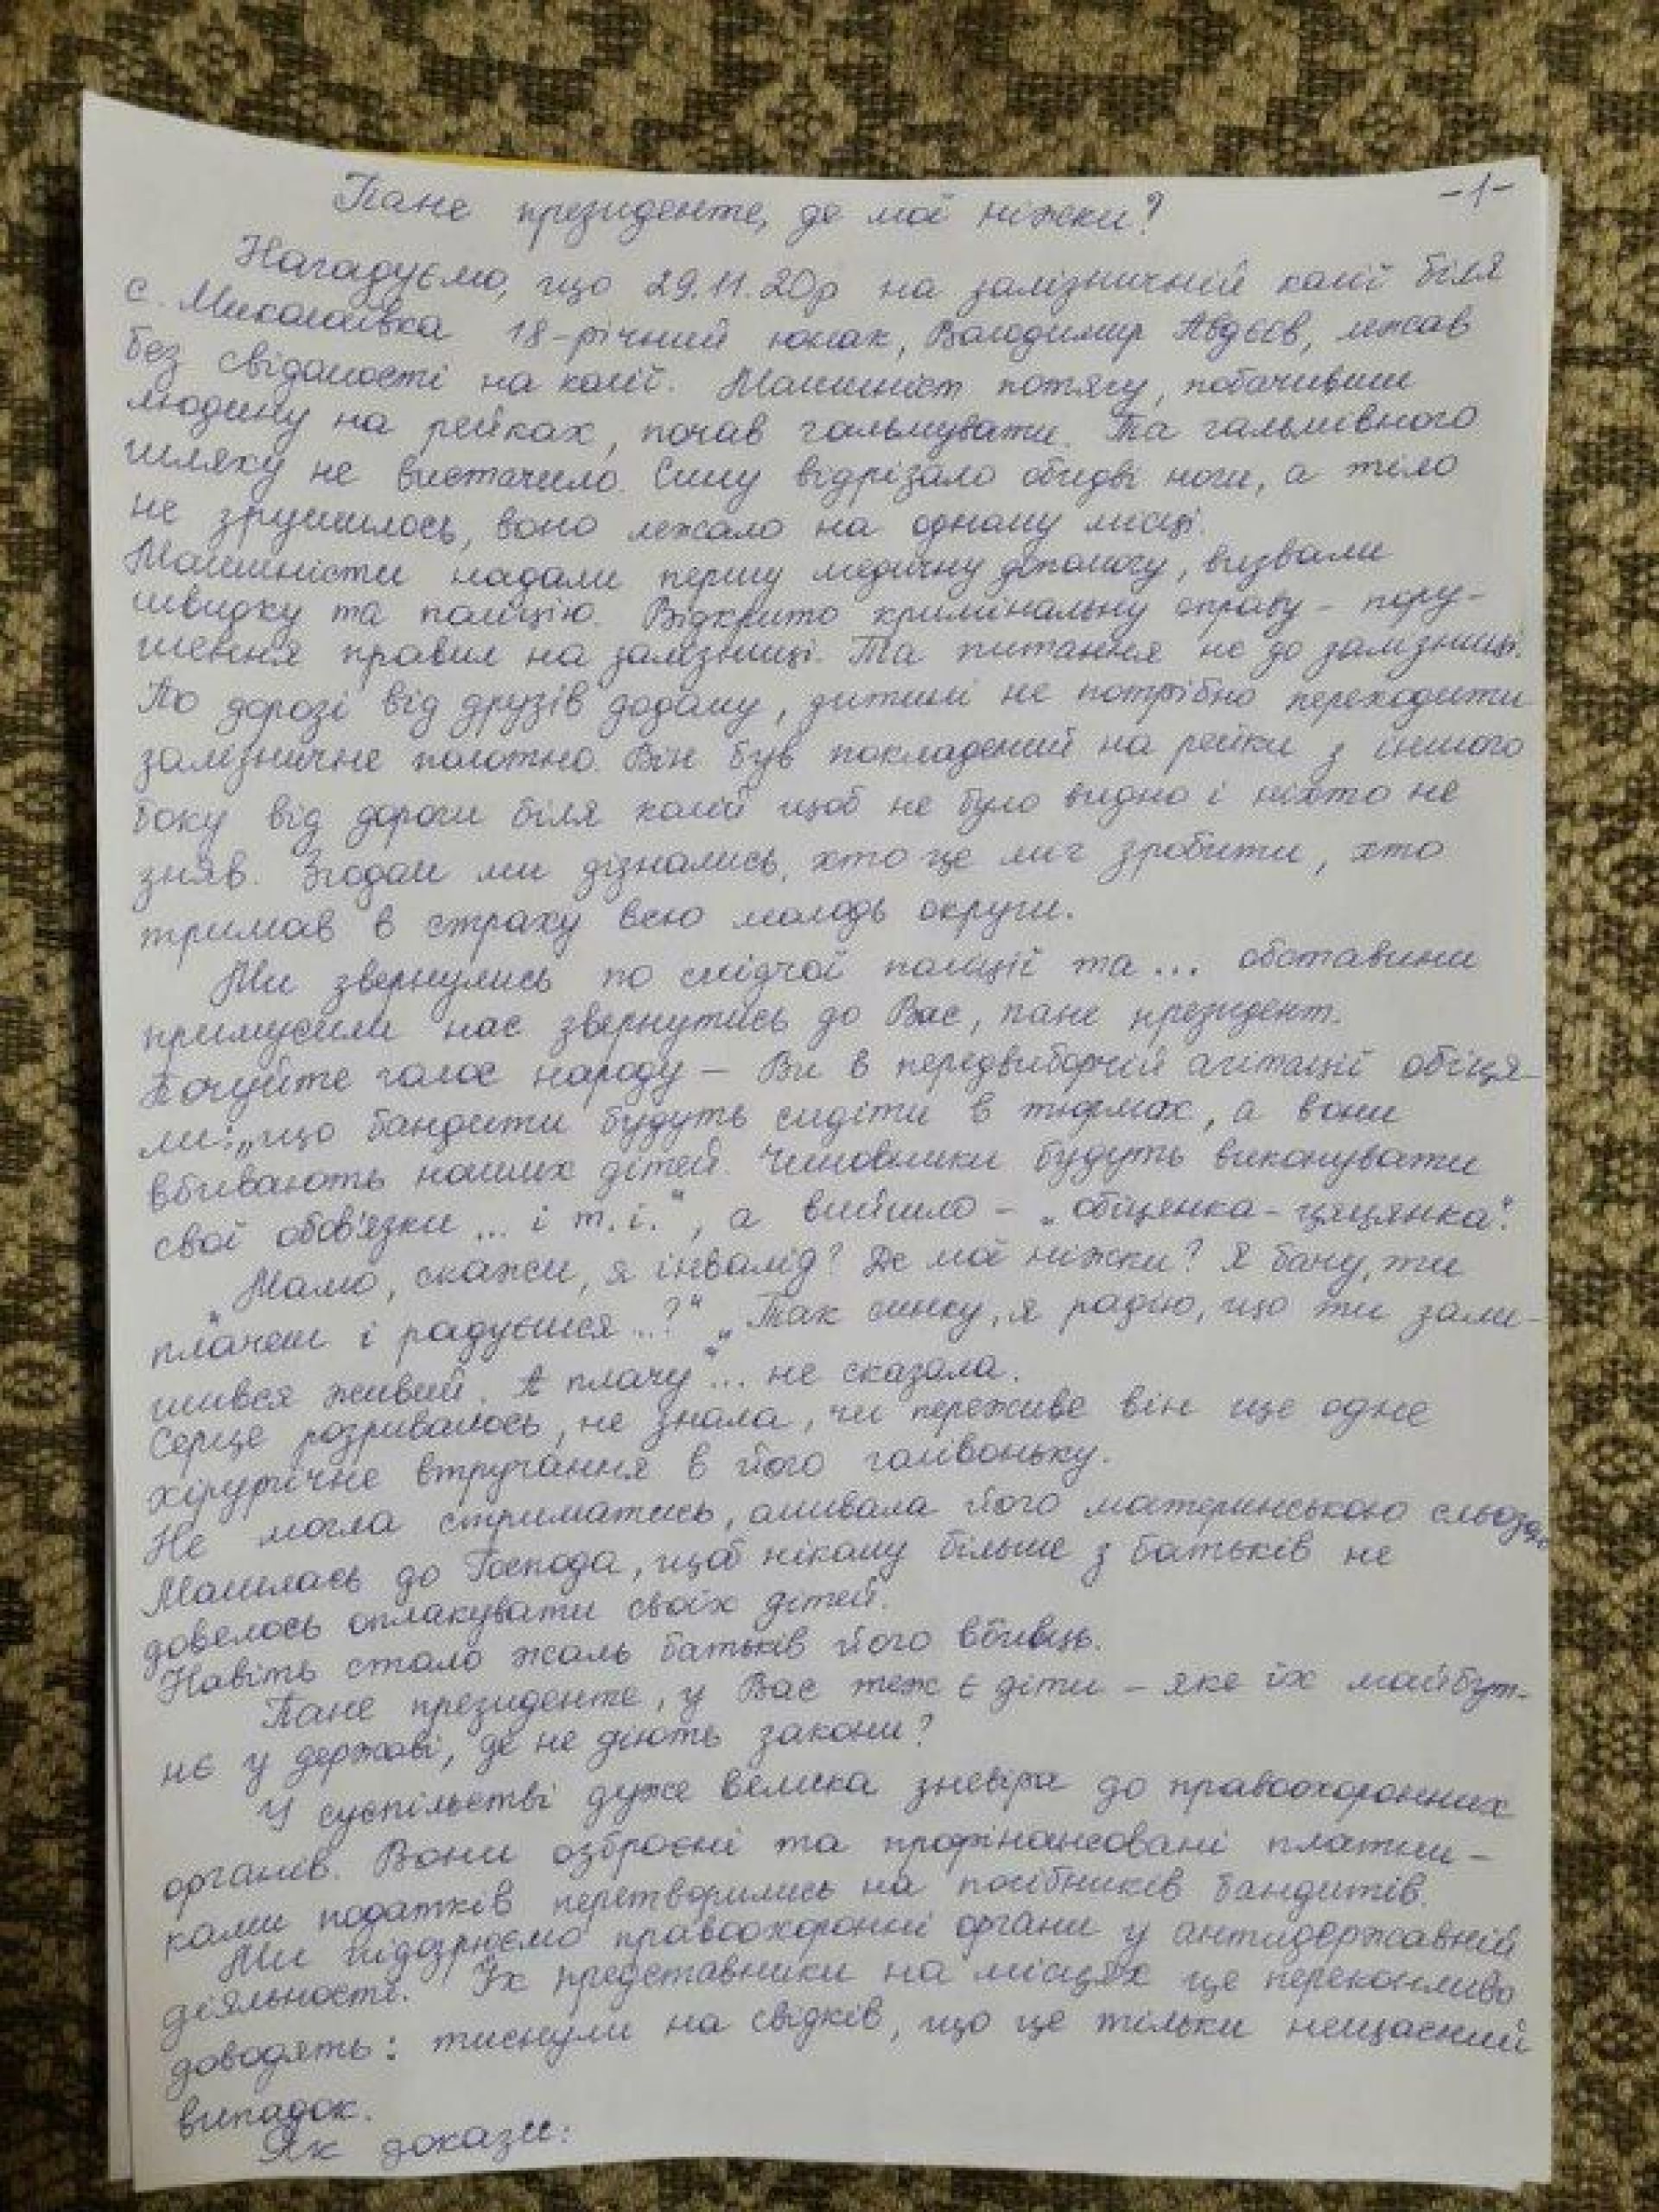 -1-
Пане президенте, де мої ніжки?
Нагадуємо, що 29.11.20р на залізничній колії біля
с. Миколаївка 18-річний юнак, Володимир Авдєєв, лежав
без свідомості на колії. Машиніст потягу, побачивши
людину на рейках, почав гальмувати. Та гальмівного
шляху не вистачило. Сину відрізало обидві ноги, а тіло
не зрушилось, воно лежало на одному місці.
Машиністи надали першу медичну допомогу, визвали
швидку та поліцію. Відкрито кримінальну справу - пору-
шення правил на залізниці. Та питання не до залізниці.
По дорозі від друзів додому, дитині не потрібно переходити
залізничне полотно. Він був покладений на рейки з іншого
боку від дороги біля колій щоб не було видно і ніхто не
зняв. Згодом ми дізнались, хто це міг зробити, хто
тримав в страху всю молодь округи.
Ми звернулись до слідчої поліції та... обставини
примусили нас звернутись до Вас, пане президент.
Почуйте голос народу - Ви в передвиборчій агітації обіця-
ли: „що бандити будуть сидіти в тюрмах, а вони
вбивають наших дітей. Чиновники будуть виконувати
свої обов'язки... і т.і.", а вийшло - „обіцянка-цяцянка".
„Мамо, скажи, я інвалід? Де мої ніжки? Я бачу, ти
плачеш і радуєшся...?" „Так синку, я радію, що ти зали-
шився живий. А плачу"... не сказала.
Серце розривалось, не знала, чи переживе він ще одне
хірургічне втручання в його голівоньку.
Не могла стриматись, омивала його материнською сльозою
Молилась до Господа, щоб нікому більше з батьків не
довелось оплакувати своїх дітей.
Навіть стало жаль батьків його вбивць.
Пане президенте, у Вас теж є діти - яке їх майбут-
нє у державі, де не діють закони?
У суспільстві дуже велика зневіра до правоохоронних
органів. Вони озброєні та профінансовані платни-
ками податків перетворились на посібників бандитів.
Ми підозрюємо правоохоронні органи у антидержавній
діяльності. Їх представники на місцях це переконливо
доводять: тиснули на свідків, що це тільки нещасний
випадок.
Як докази: